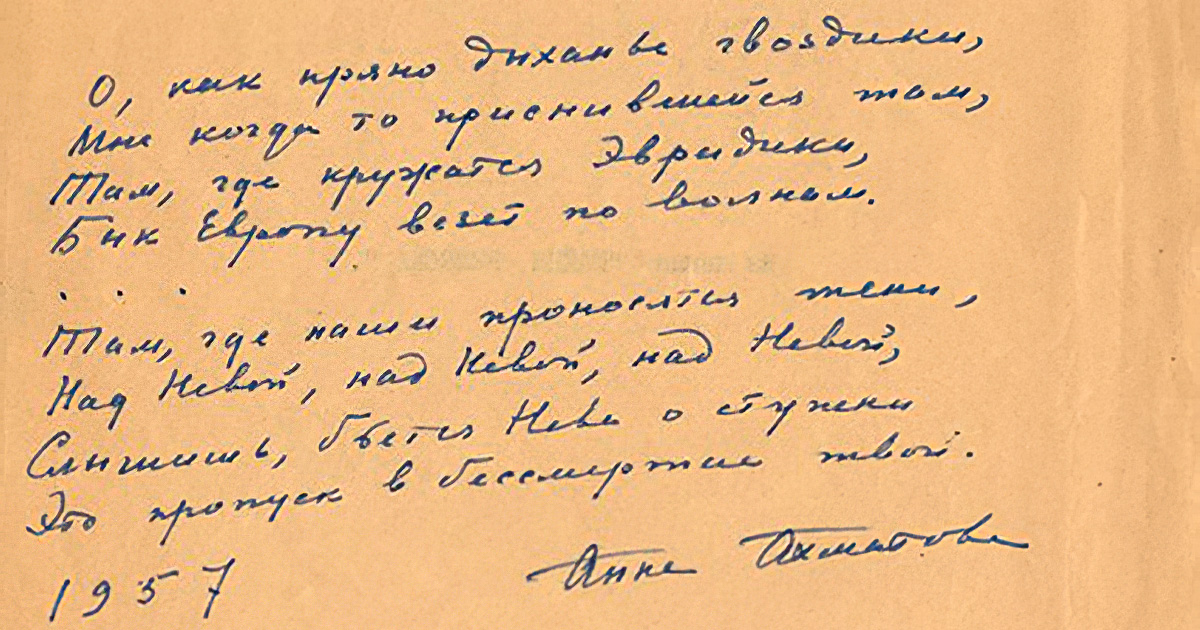 О, как пряно дыханье гвоздики,
Мне когда то приснившейся там,
Там, где кружатся Эвридики,
Бык Европу везет по волнам.
. . .
Там, где наши проносятся тени,
Над Невой, над Невой, над Невой,
Слышишь, бьется Нева о ступени
Это пропуск в бессмертие твой.
1957 Анна Ахматова